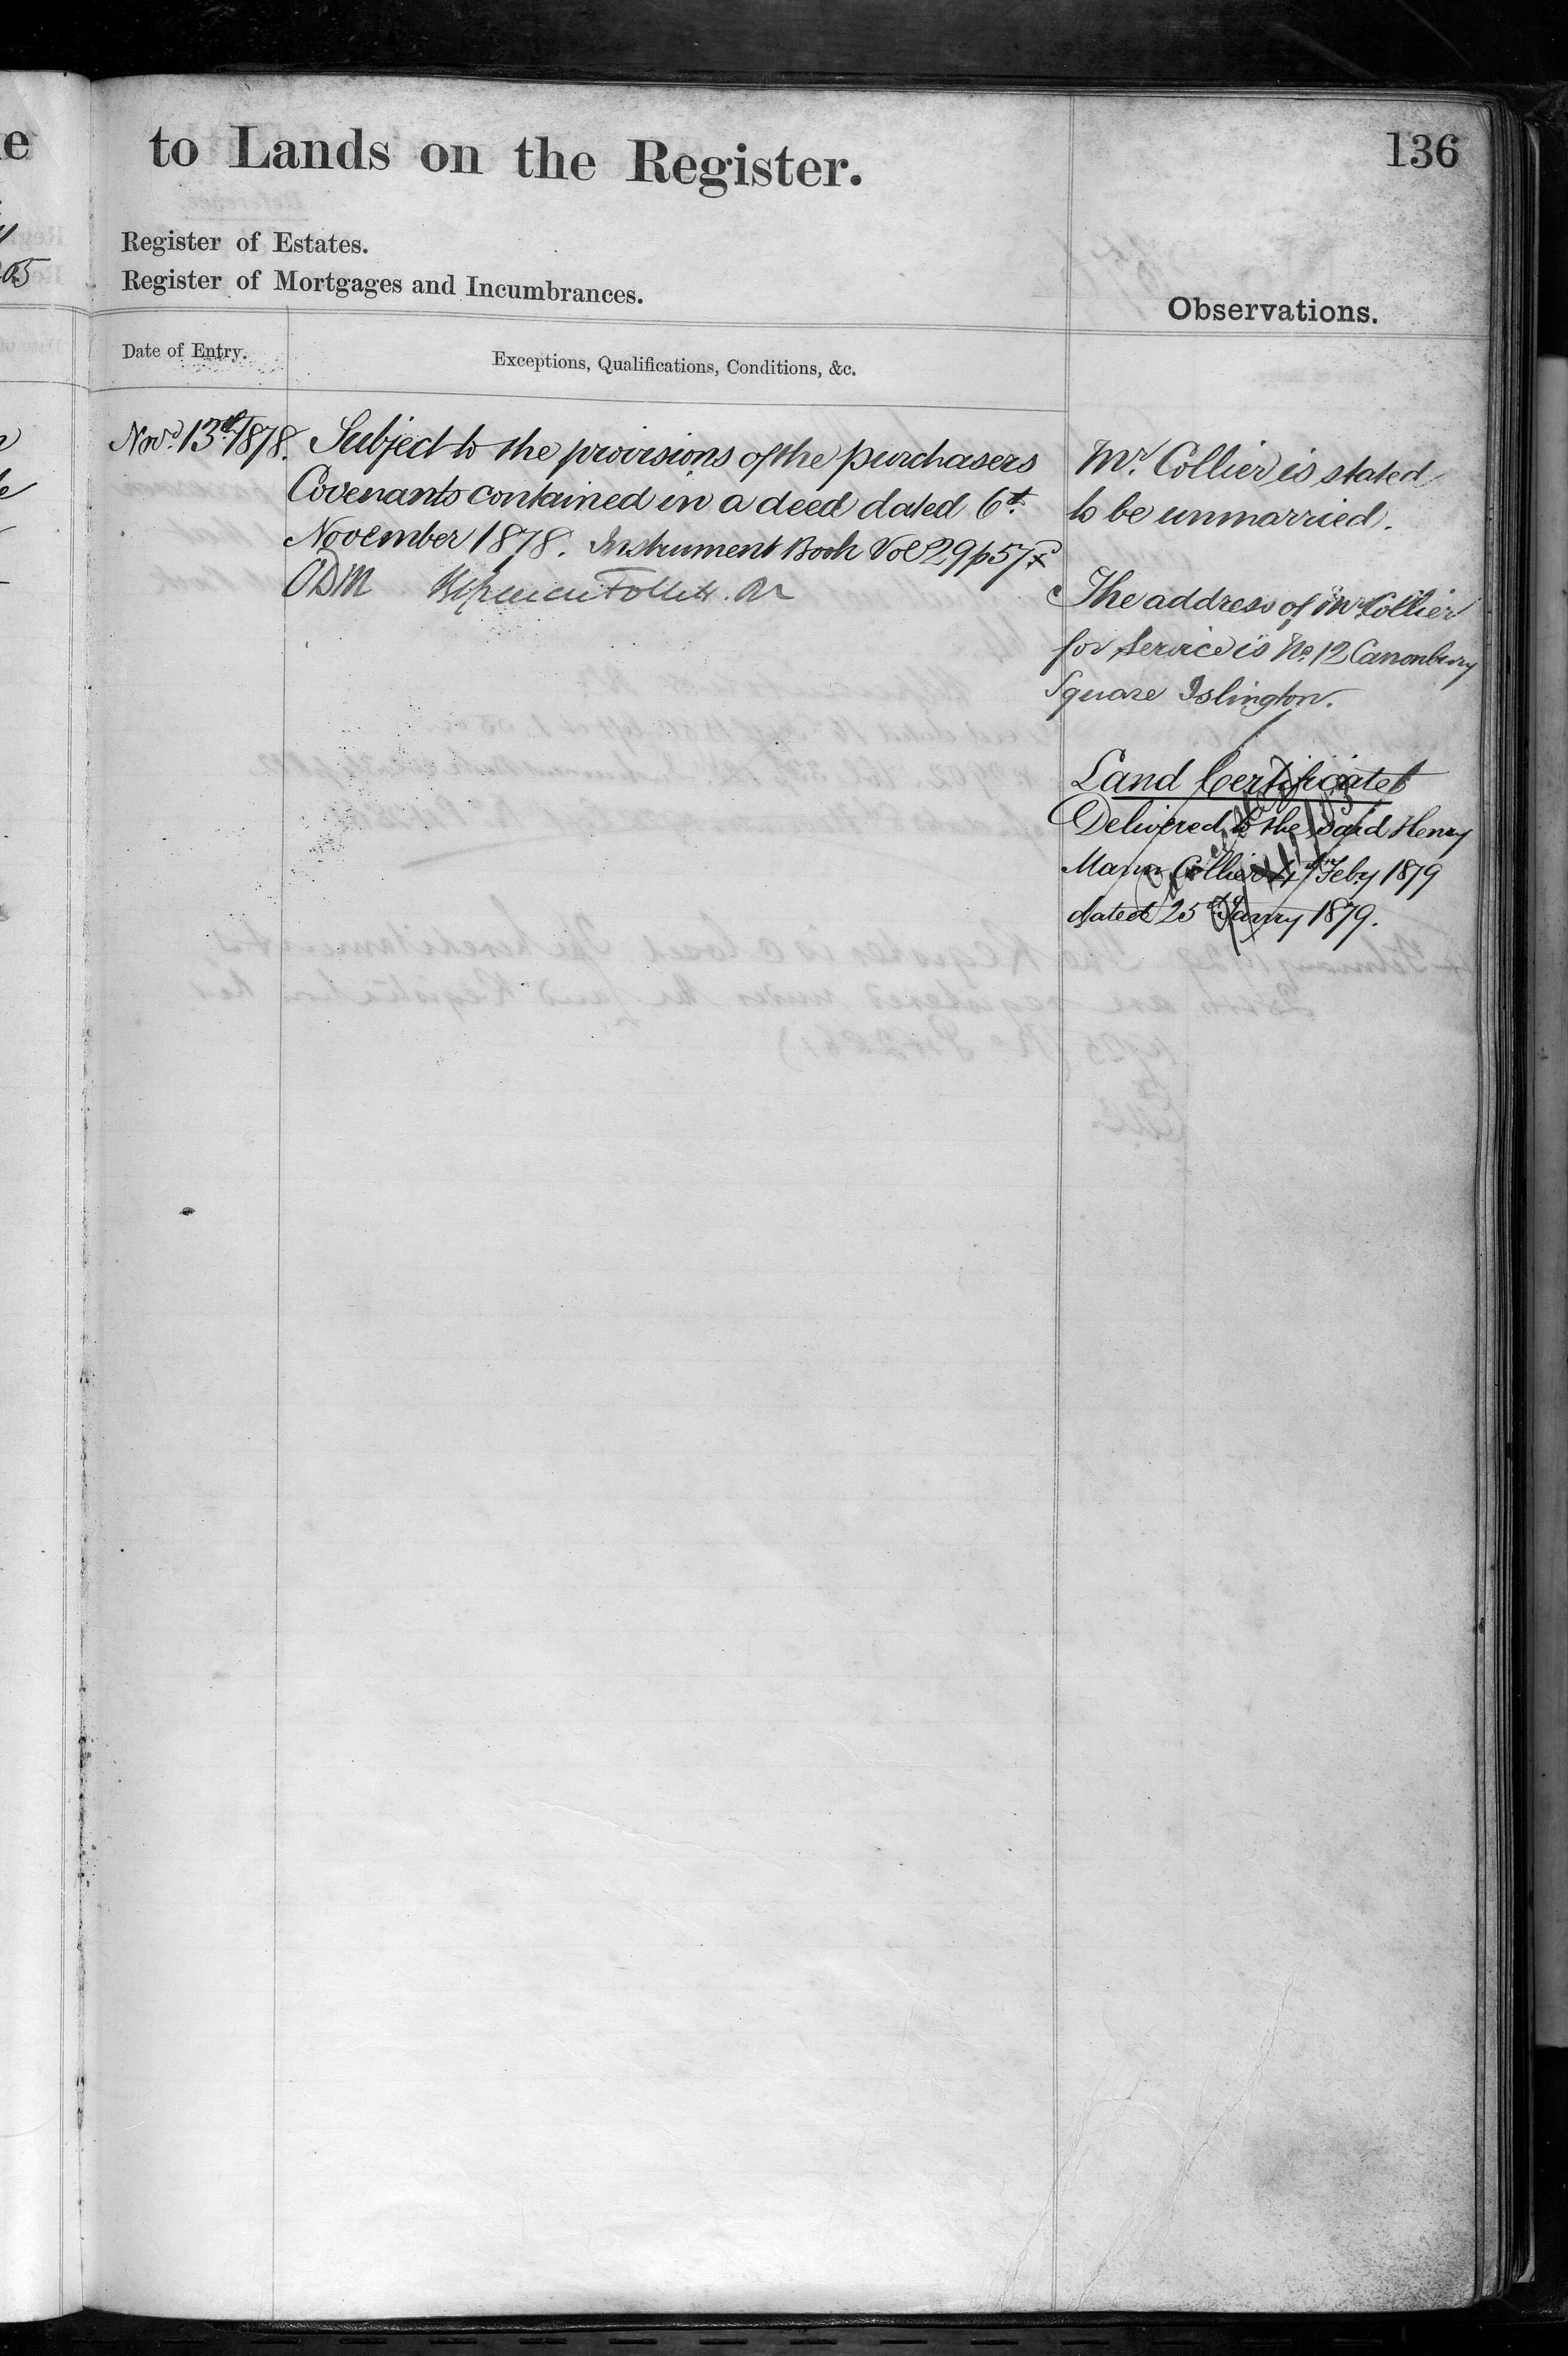 to Lands on the Register.
136
Register of Estates.
Register of Mortgages and Incumbrances.
Observations.
Date of Entry.
Exceptions, Qualifications, Conditions, &c.
Novr. 13th 1878.
Subject to the provisions of the purchasers
Covenants contained in a deed dated 6th
November 1878. Instrument Book Vol 29 p 57
ODM Follett. Rr
Mr. Collier is stated
to be unmarried.
The address of Mr Collier
for service is No. 12 Canonbury
Square Islington.
Land Certificate
Delivered to the said Henry
Mann Collier 4th Feby 1879
dated 25th Janry 1879.